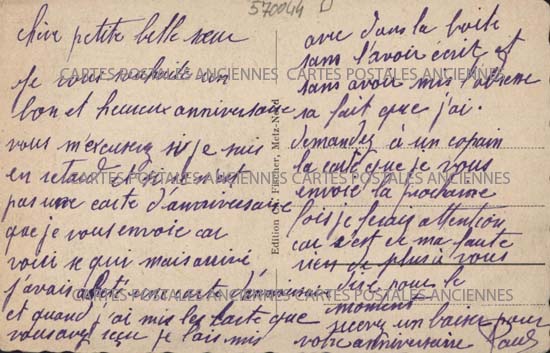 570044
chère petite belle sœur
Je vous souhaite un
bon et heureux anniversaire
vous m'excuserez si je suis
en retard et si ce n'est
pas une carte d'anniversaire
que je vous envoie car
voici ce qui m'est arrivé
j'avais acheté une carte d'anniversaire
et quand j'ai mis la carte que
vous avez reçu je l'ais mis
avec dans la boite
sans l'avoir écrit et
sans avoir mis l'adresse
sa fait que j'ai
demandez à un copain
la carte que je vous
envoie la prochaine
fois je ferais attention
car c'est de ma faute
rien de plus à vous
dire pour le
moment
recevez un baiser pour
votre anniversaire
Edition C. Fischer, Metz-Nord
CARTES POSTALES ANCIENNES CARTES POSTALES ANCIENNES
CARTES POSTALES ANCIENNES CARTES POSTALES ANCIENNES
CARTES POSTALES ANCIENNES CARTES POSTALES ANCIENNES